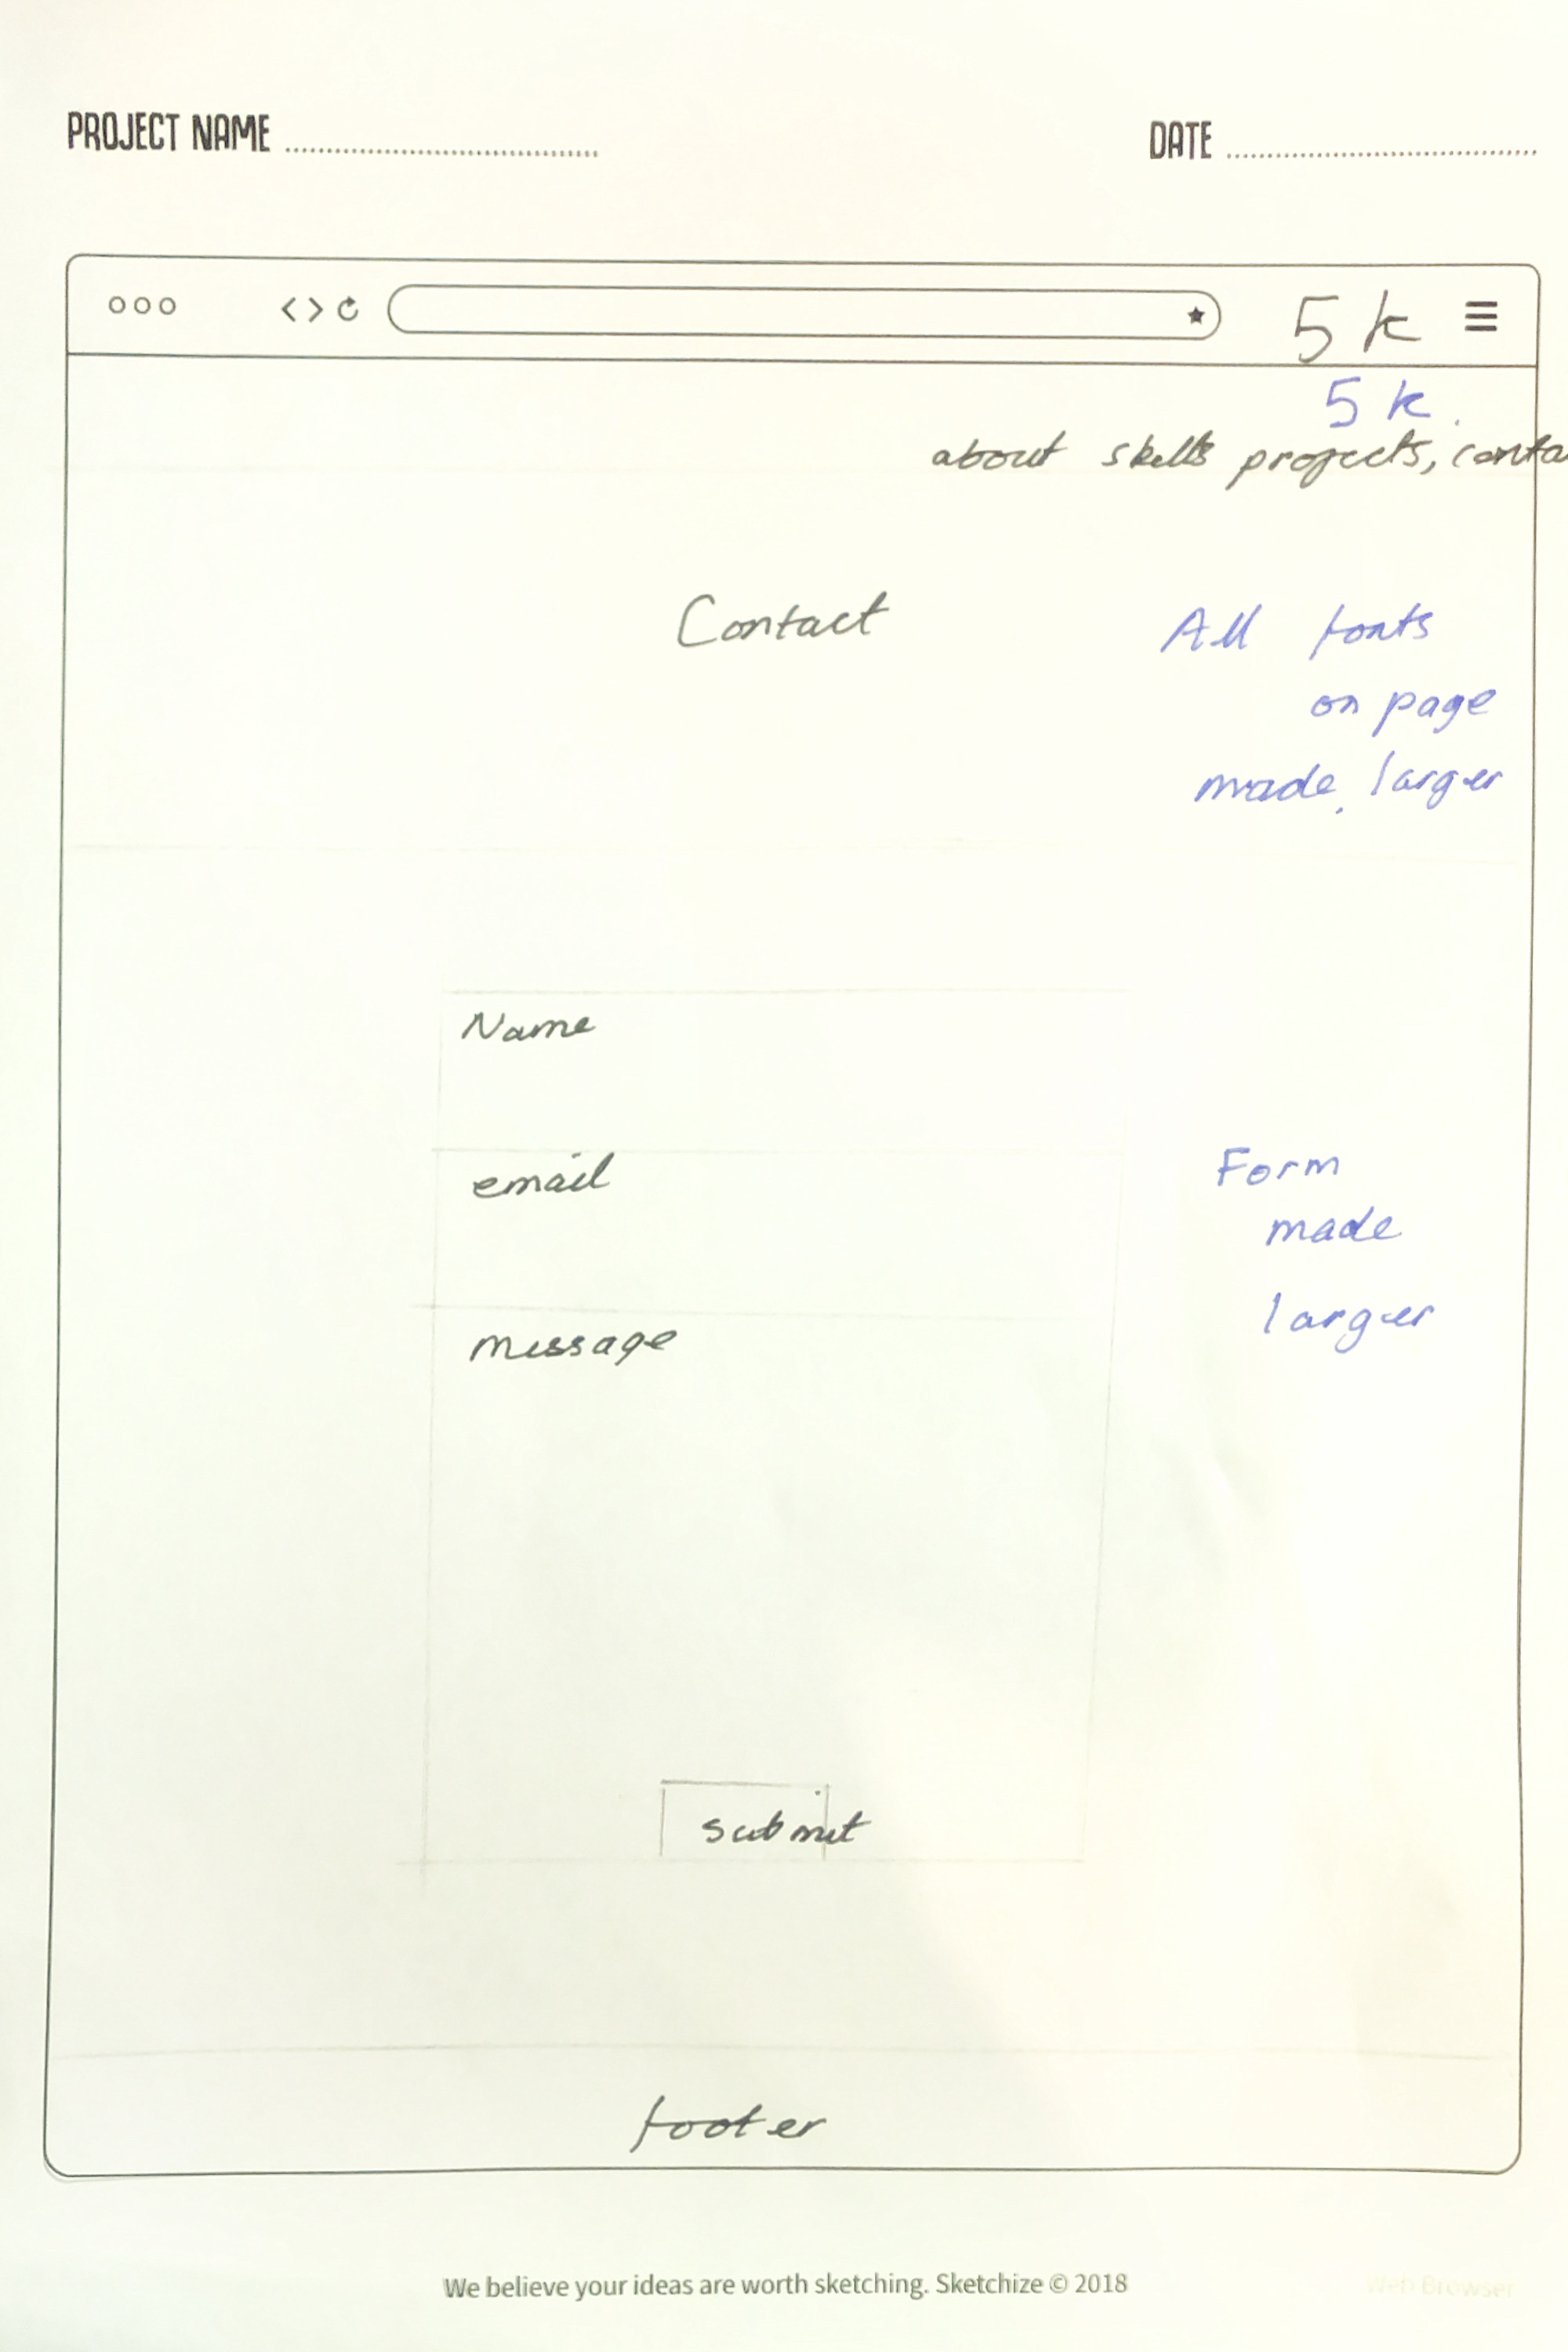 PROJECT NAME
DATE
5k
5k.
about skills projects, conta
Contact
All fonts
on page
made larger
Name
email
Form
made
larger
message
submit
footer
We believe your ideas are worth sketching. Sketchize © 2018
Web Browser